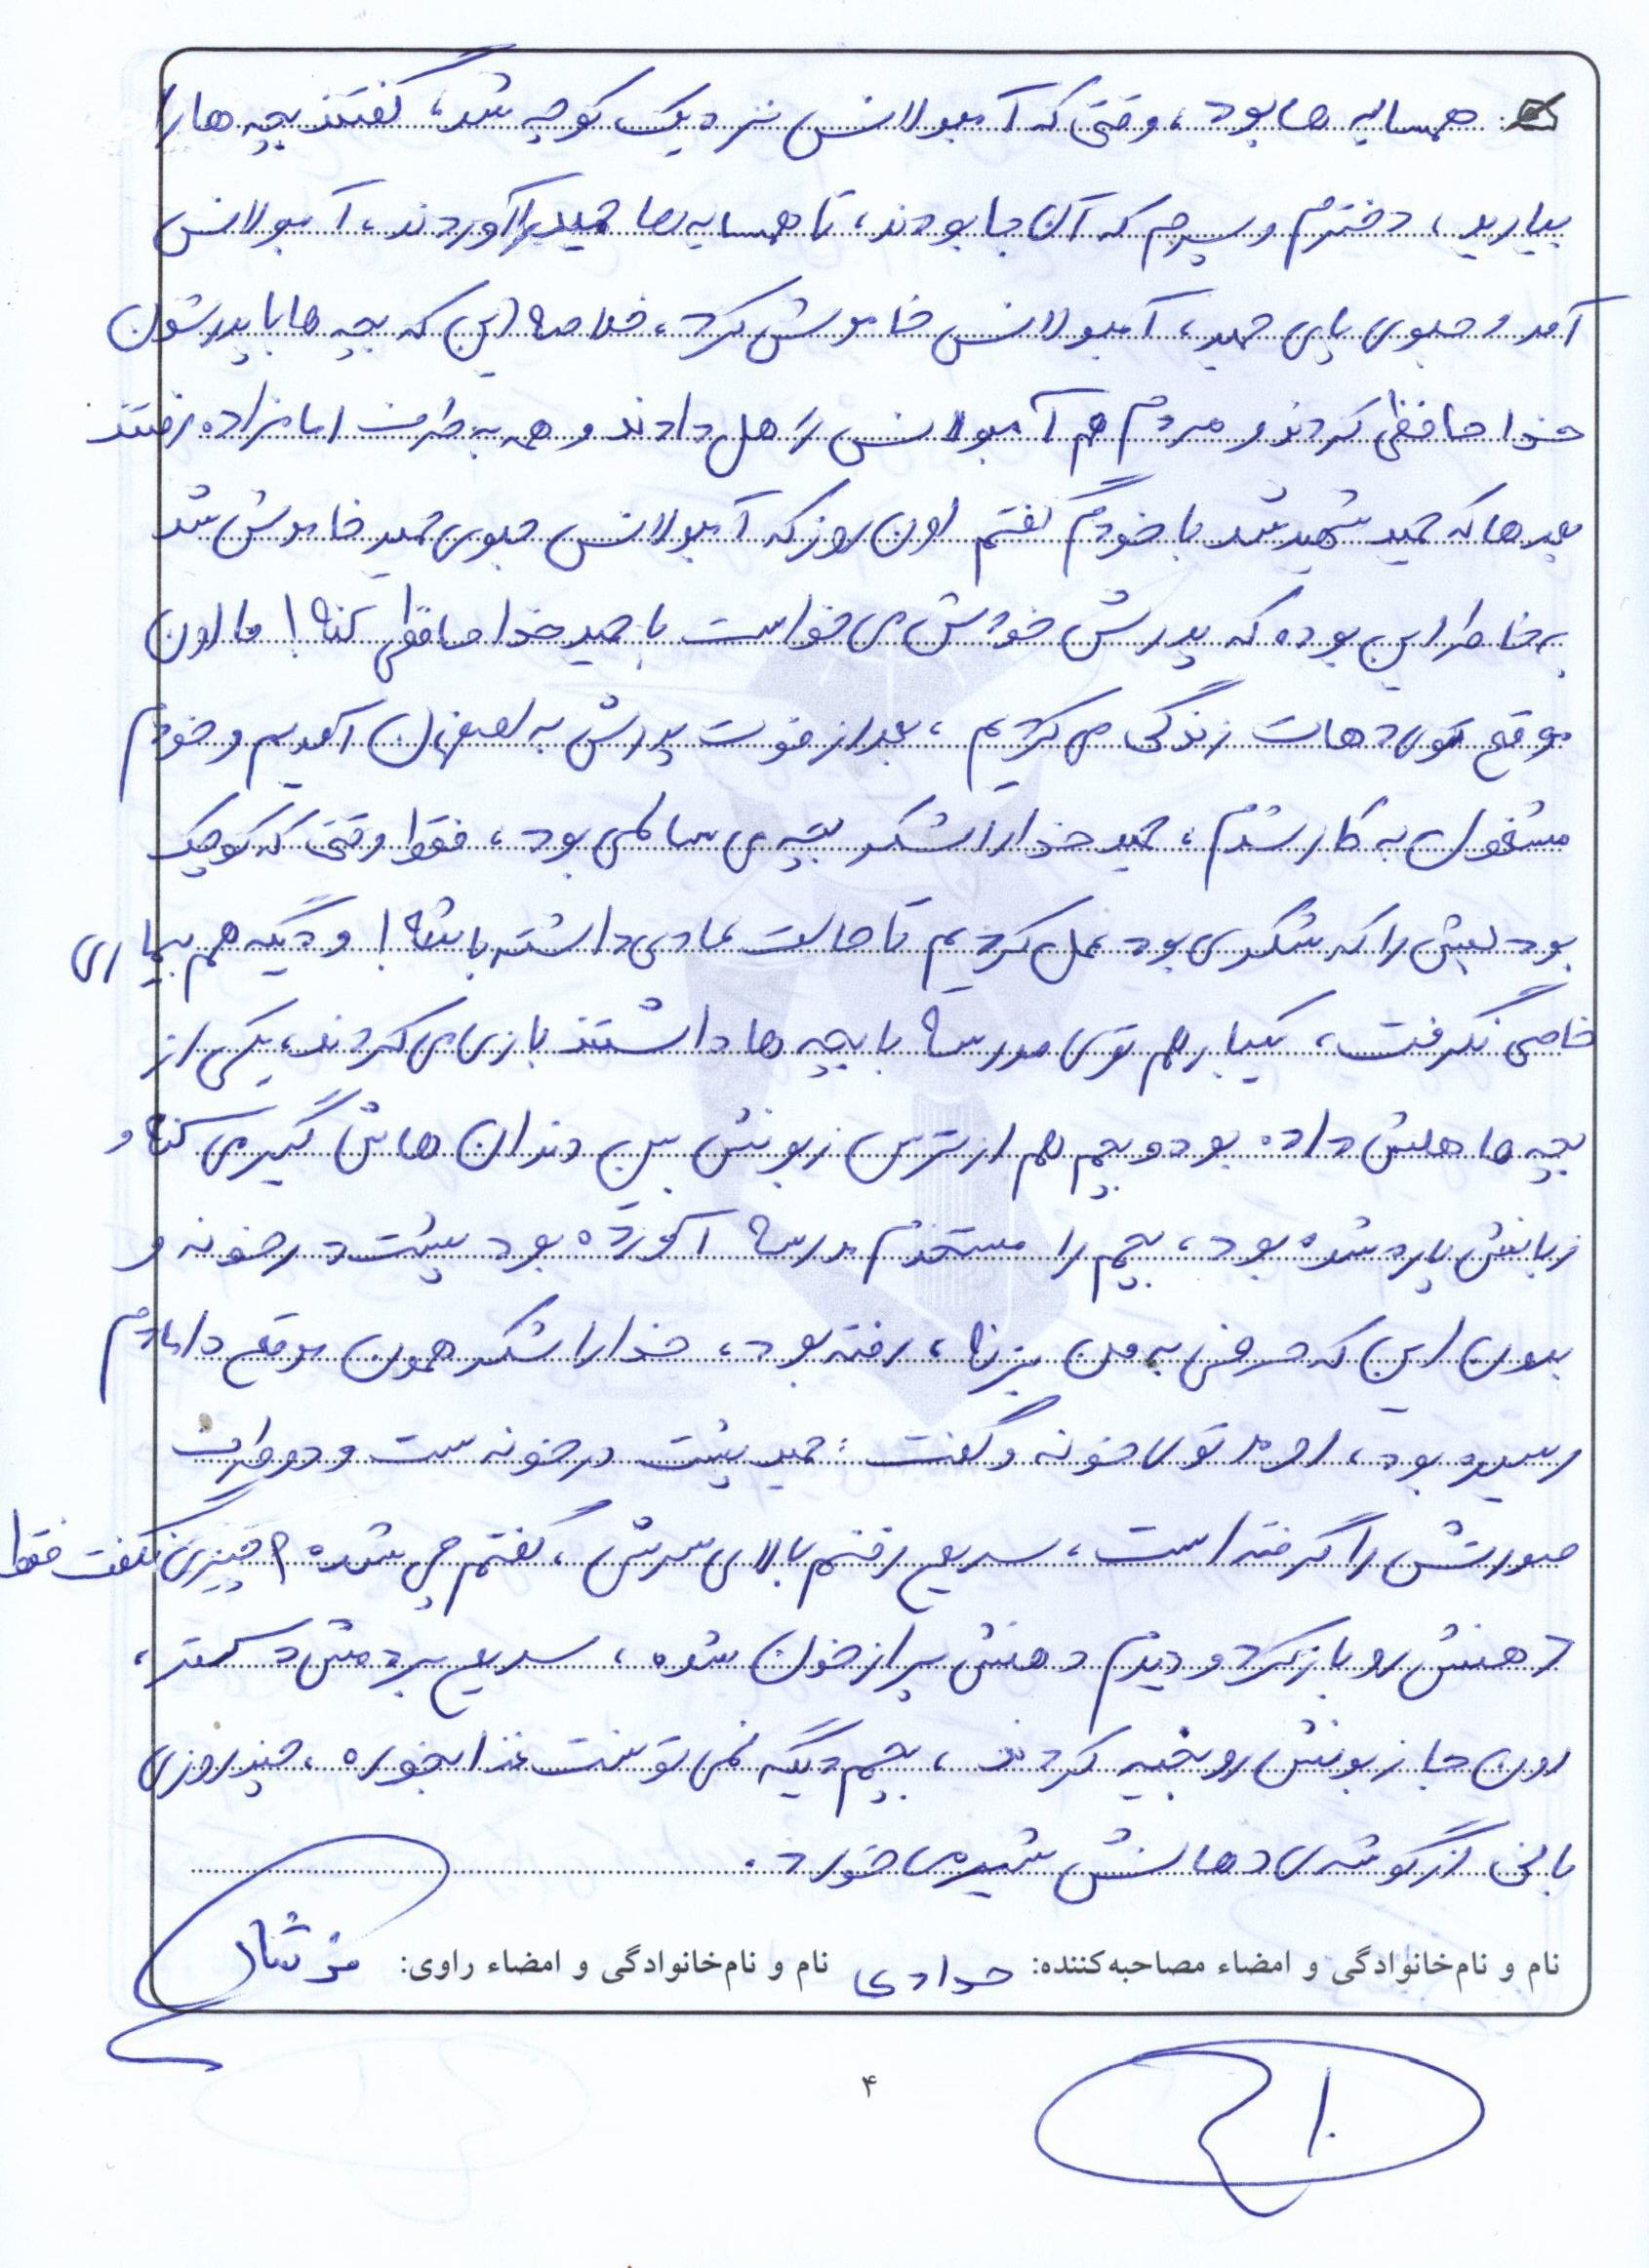 همسایه ها بود، وقتی که آمبولانس نزدیک کوچه شد، گفتند بچه ها را
بیارید، دخترم و پسرم که آن جا بودند، تا همسایه ها حمید را آوردند، آمبولانس
آمد و جلوی پای حمید، آمبولانس خاموش کرد، خلاصه این که بچه ها با پدرشون
خداحافظی کردند و مردم هم آمبولانس را هل دادند و همه به طرف امامزاده رفتند
بعدها که حمید شهید شد با خودم گفتم اون روز که آمبولانس جلوی حمید خاموش شد
به خاطر این بوده که پدرش خودش می خواست با حمید خداحافظی کنه! ما اون
موقع توی دهات زندگی می کردیم، بعد از فوت پدرش به اصفهان آمدیم و خودم
مشغول به کار شدم، حمید خدا را شکر بچه ی سالمی بود، فقط وقتی که کوچیک
بود لبش را که شکری بود عمل کردیم تا حالت عادی داشته باشه! و دیگه هم بیماری
خاصی نگرفت، یکبار هم توی مدرسه با بچه ها داشتند بازی می کردند، یکی از
بچه ها هلش داده بود و بچم هم از ترس زبونش بین دندان هاش گیر می کنه و
زبانش پاره شده بود، بچم را مستخدم مدرسه آورده بود پشت در خونه و
بدون این که حرفی به من بزنه، رفته بود، خدا را شکر همون موقع دامادم
رسیده بود، اومد توی خونه و گفت: حمید پشت در خونه ست و دو طرف
صورتش را گرفته است، سریع رفتم بالای سرش، گفتم چی شده؟ چیزی نگفت فقط
دهنش رو باز کرد و دیدم دهنش پر از خون شده، سریع بردمش دکتر،
اون جا زبونش رو بخیه کردند، بچم دیگه نمی تونست غذا بخوره، چند روزی
با نی از گوشه ی دهانش شیر می خورد.
نام و نام‌خانوادگی و امضاء مصاحبه‌کننده: جوادی نام و نام‌خانوادگی و امضاء راوی:
۴